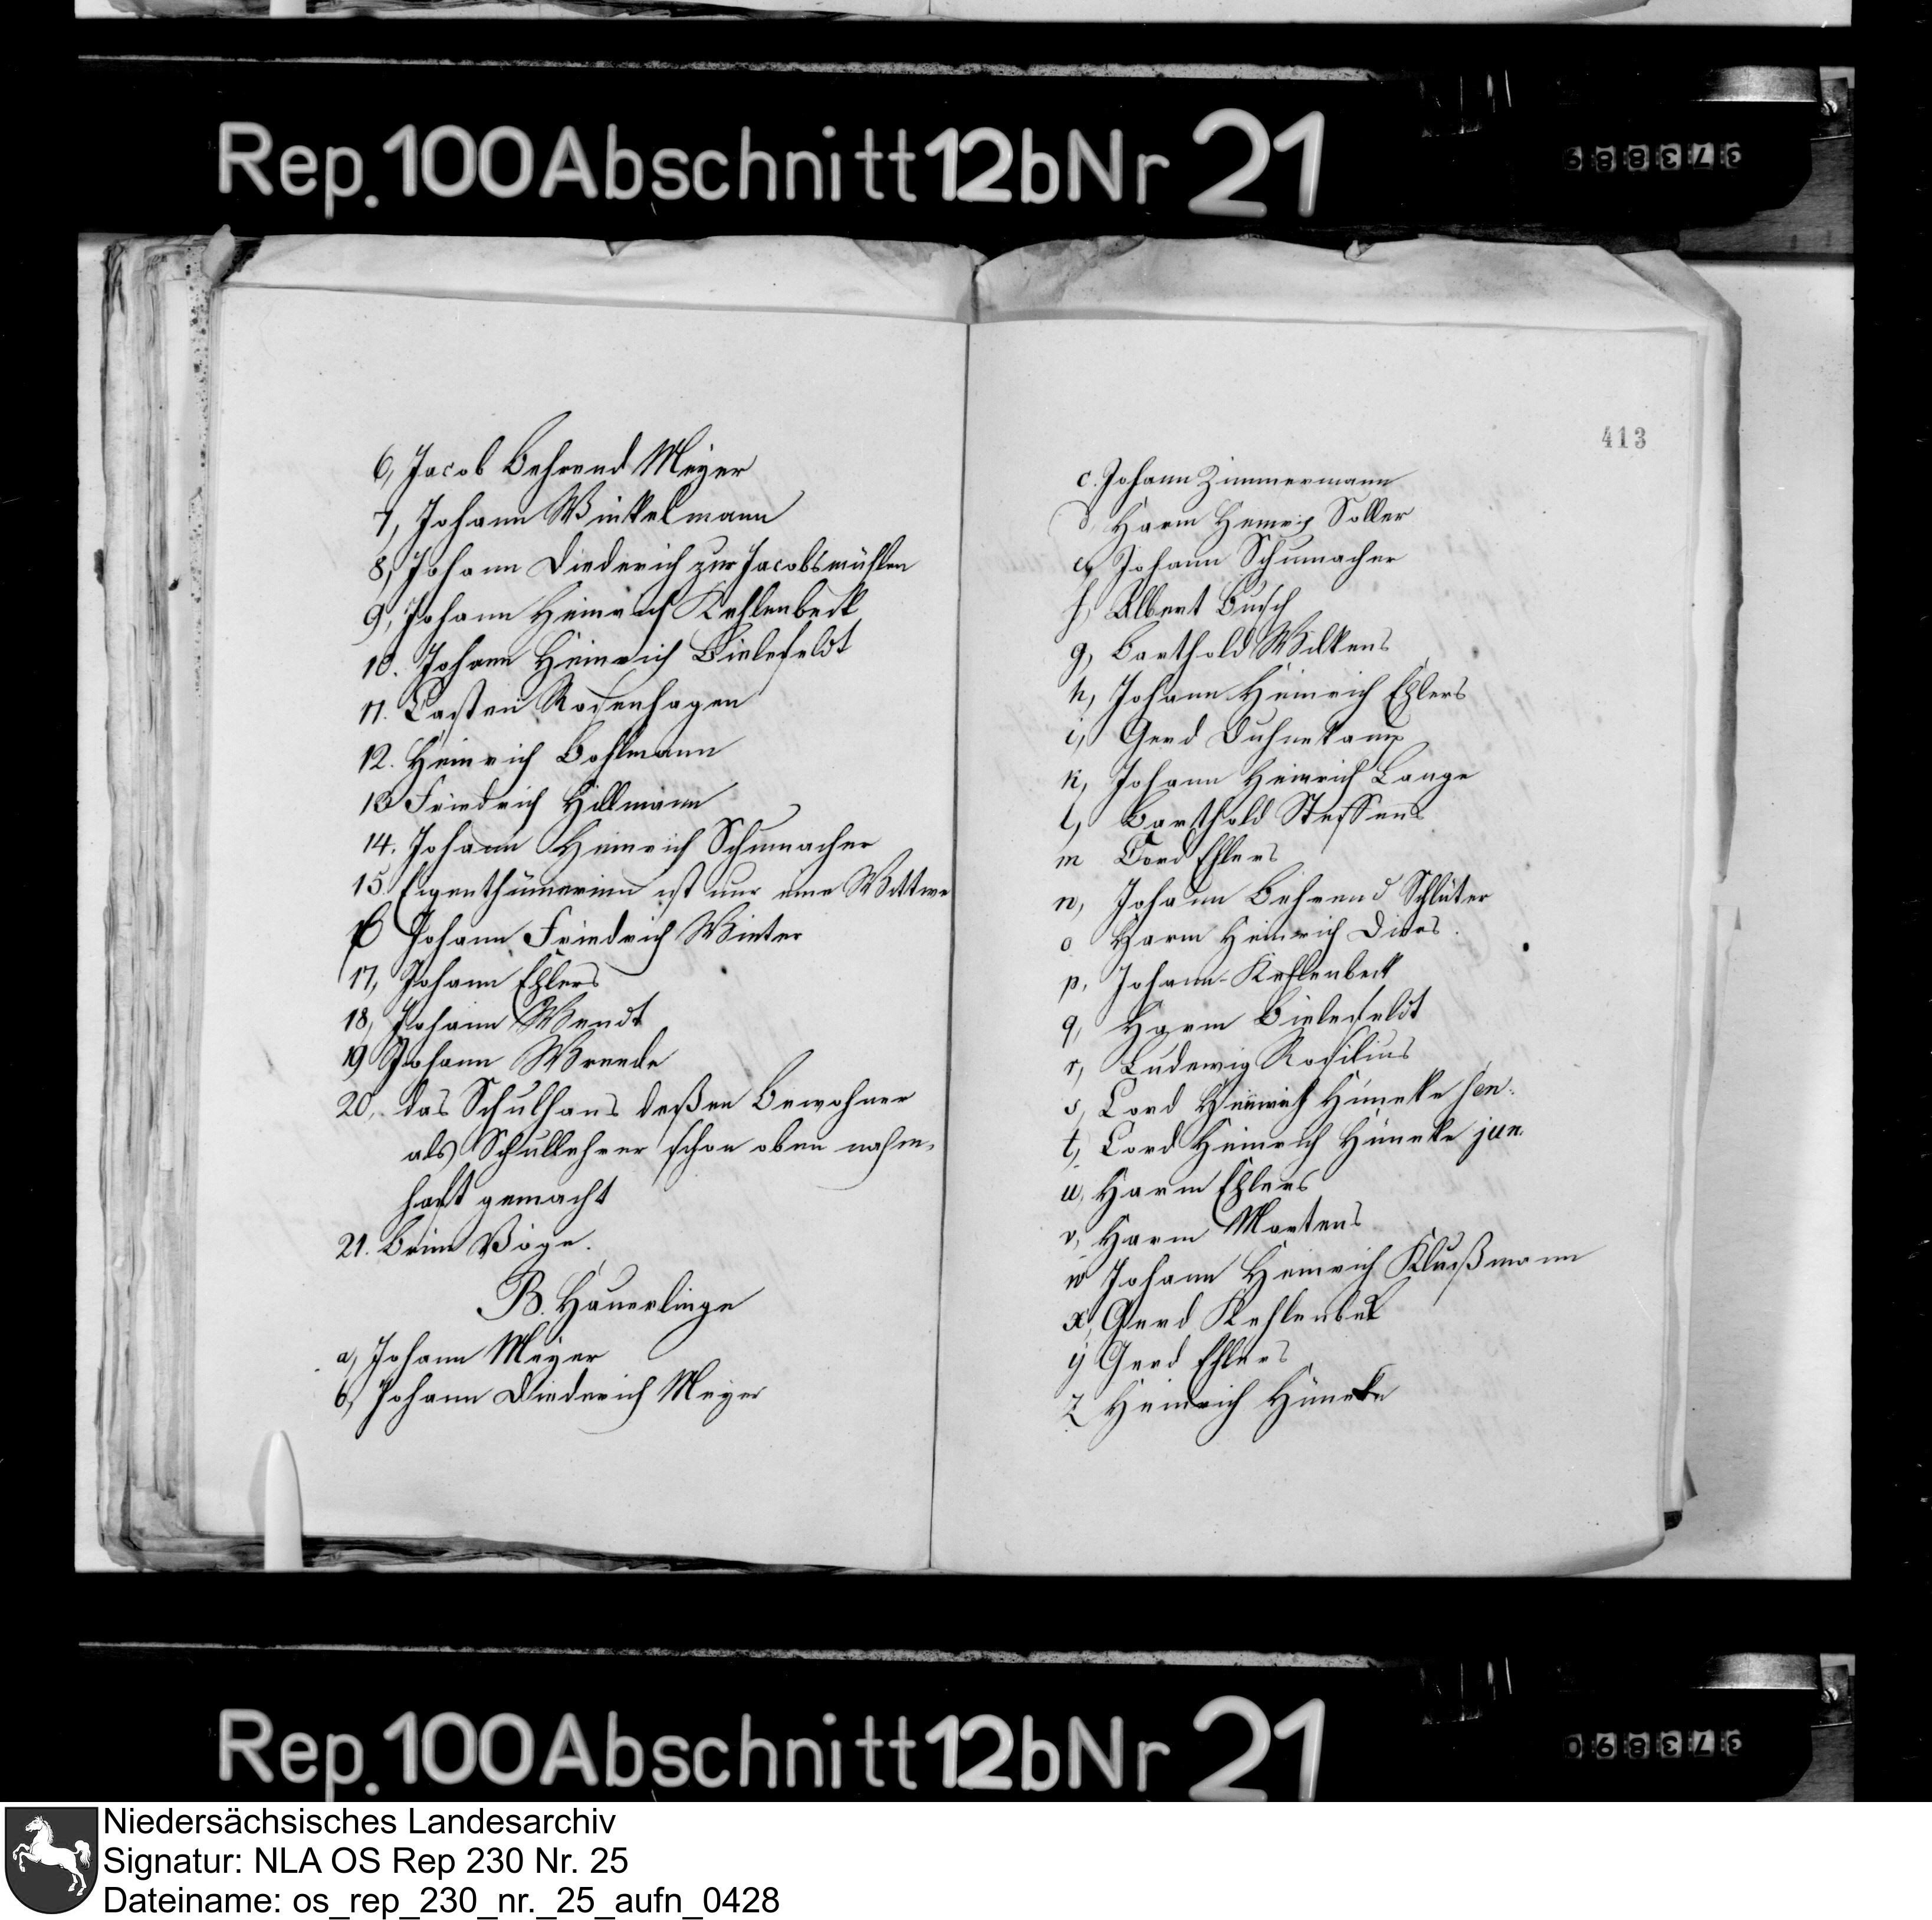 Rep. 100 Abschnitt 12b Nr 21
373889
6, Jacob Behrend Meyer
7, Johann Winkelmann
8, Johann Diederich zur Jacobsmühlen
9, Johann Heinrich Kehlenbeck
10. Johann Heinrich Bielefeldt
11. Casten Rosenhagen
12. Heinrich Bohlmann
13 Friedrich Hillmann
14. Johann Heinrich Schumacher
15. Eigenthümerinn ist nur eine Wittwe
16 Johann Friedrich Winter
17, Johann Ehlers
18, Johann Wendt
19 Johann Wreede
20, das Schulhaus deßen Bewohner
als Schullehrer schon oben nahm-
haft gemacht
21. Beim Böge.
B. Häuerlinge
a, Johann Meyer
b, Johann Diederich Meyer
413
c. Johann Zimmermann
d, Harm Henrich Soller
e, Johann Schumacher
f, Albert Busch
g, Barthold Wilkens
h, Johann Heinrich Ehlers
i, Gerd Duhnekamp
k, Johann Heinrich Lange
l, Barthold Steffens
m Cord Ehlers
n, Johann Behrend Schlüter
o Harm Heinrich
p, Johann Kehlenbeck
q, Harm Bielefeldt
r, Ludewig Rosilius
s, Cord Heinrich Hüneke sen.
t, Cord Heinrich Hüneke jun.
u, Harm Ehlers
v, Harm Martens
w Johann Heinrich Klußmann
x, Gerd Kehlenbek
y Gerd Ehlers
z Heinrich Hüneke
Rep. 100 Abschnitt 12b Nr 21
373890
Niedersächsisches Landesarchiv
Signatur: NLA OS Rep 230 Nr. 25
Dateiname: os_rep_230_nr._25_aufn_0428